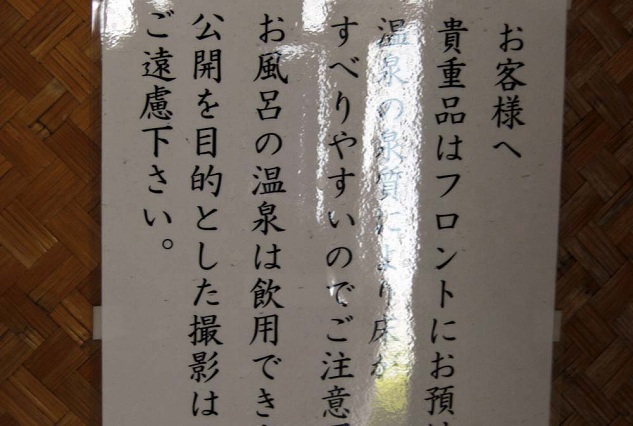 お客様へ
貴重品はフロントにお預け
温泉の泉質により床が
すべりやすいのでご注意下
お風呂の温泉は飲用でき
公開を目的とした撮影は
ご遠慮下さい。